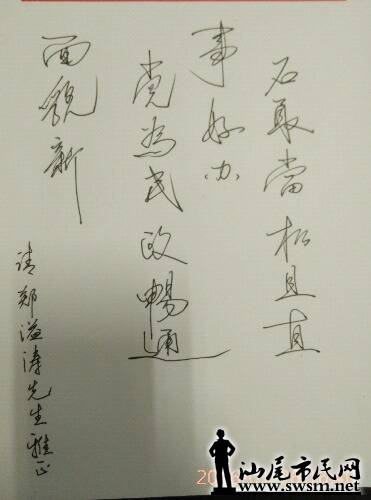 石敢當松且直
事好办
党为民政暢通
面貌新
请郑溢涛先生雅正
汕尾市民网
www.swsm.net